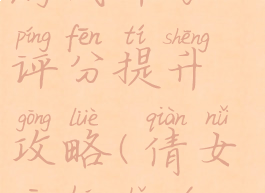 píng fēn tí shēng
评分提升
gōng lüè qiàn nǚ
攻略(倩女